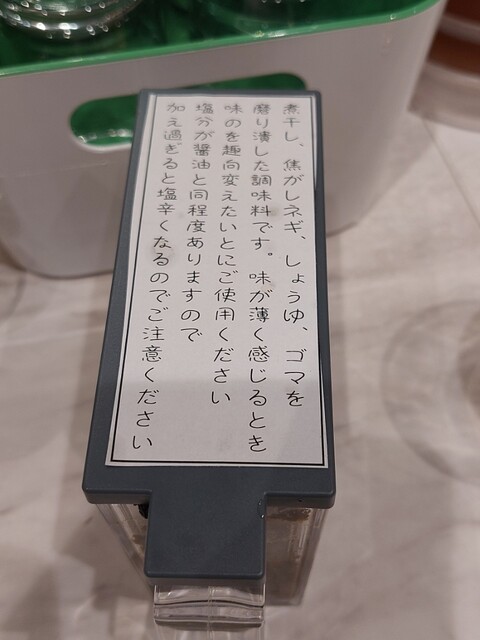 煮干し、焦がしネギ、しょうゆ、ゴマを
磨り潰した調味料です。味が薄く感じるとき
味のを趣向変えたいとにご使用ください
塩分が醤油と同程度ありますので
加え過ぎると塩辛くなるのでご注意ください